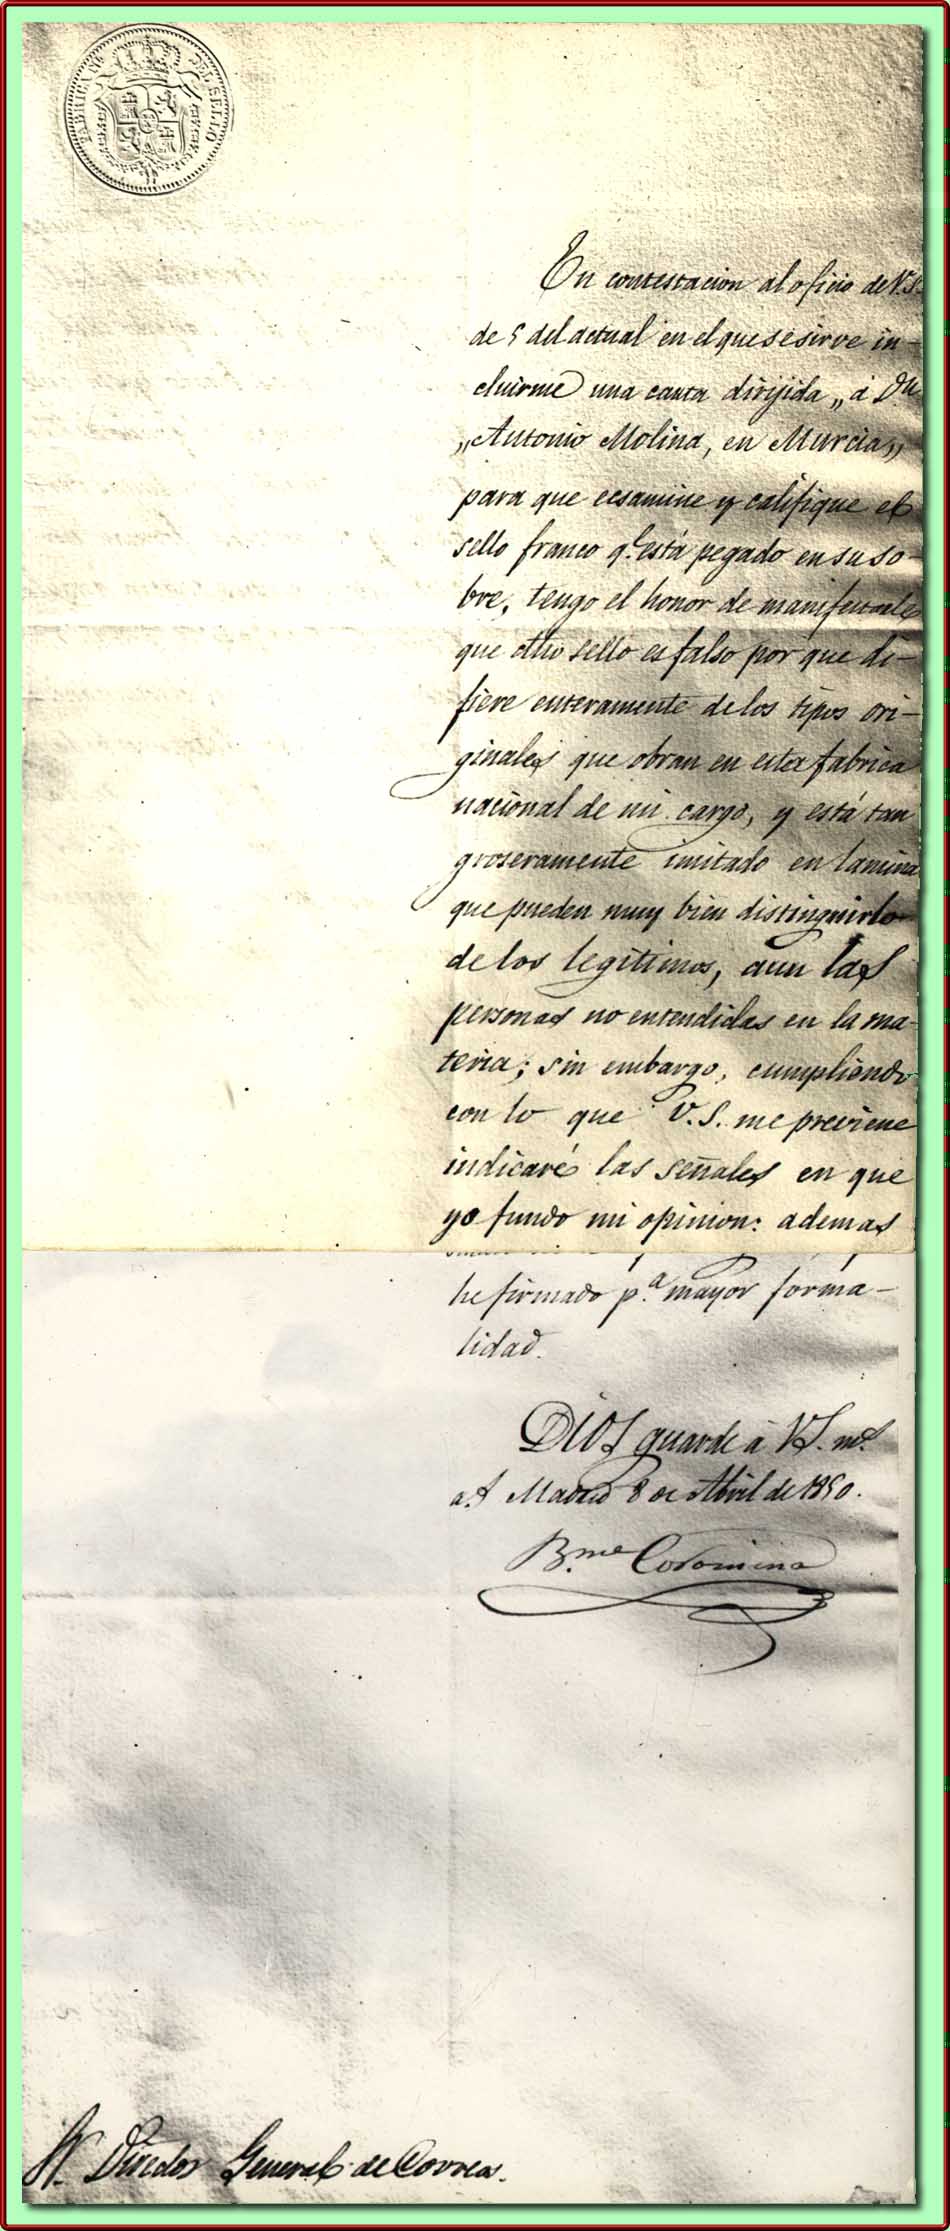 FABRICA NL. DEL SELLO
En contestacion al oficio de V.S.
de 5 del actual en el que se sirve in-
cluirme una carta dirijida „á Dn
„Antonio Molina, en Murcia„
para que ecsamine y califique el
sello franco q.e está pegado en su so-
bre, tengo el honor de manifestarle
que dho sello es falso por que di-
fiere enteramente de los tipos ori-
ginales que obran en esta fabrica
nacional de mi cargo, y está tan
groseramente imitado en lamina
que pueden muy bien distinguirlo
de los legitimos, aun las
personas no entendidas en la ma-
teria; sin embargo, cumpliendo
con lo que V.S. me previene
indicaré las señales en que
yo fundo mi opinion: ademas
he firmado p.a mayor forma-
lidad.
DIOS guarde á VS. ms.
a.s Madrid 8 de Abril de 1850.
B.me Coromina
Sr. Director General de Correos.